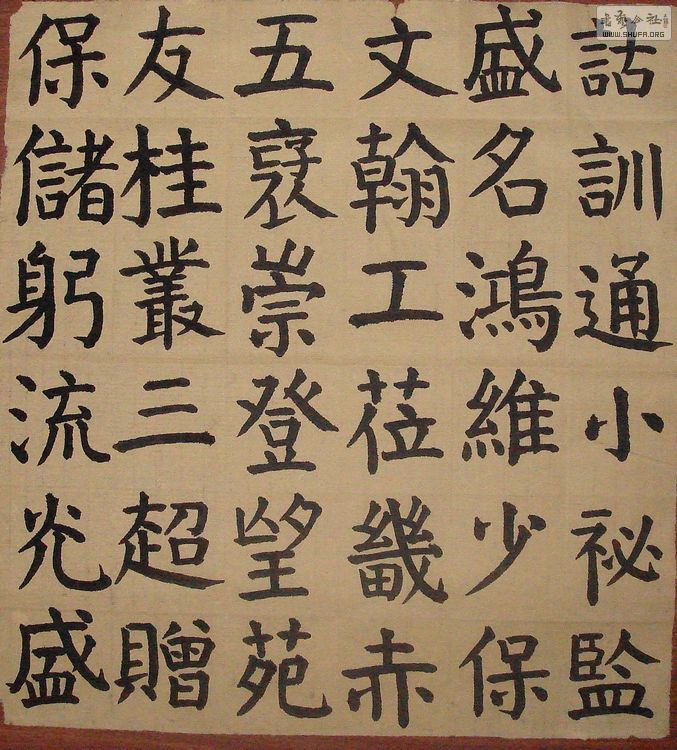 詁訓通小祕監
盛名鴻維少保
文翰工莅畿赤
五褒崇登望苑
友桂叢三超贈
保儲躬流光盛
WWW.SHUFA.ORG